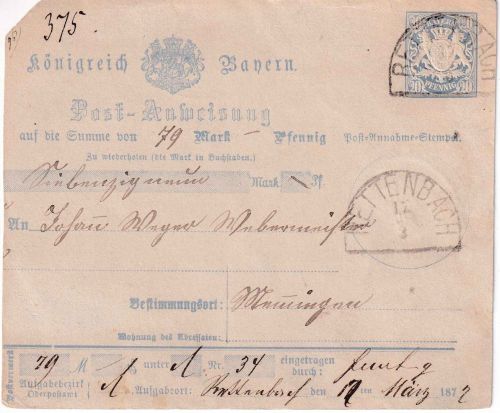 375
Königreich Bayern.
Post-Anweisung
auf die Summe von 79 Mark – Pfennig Post-Annahme-Stempel
Zu wiederholen (die Mark in Buchstaben.)
Siebenzigneun Mark Pf.
An Johann Weger Webermeister
RETTENBACH
12
3
Bestimmungsort: Memmingen
Wohnung des Adressaten:
79 M unter Nr. 34 eingetragen durch:
Aufgabebezirk Oberpostamt Aufgabeort: Rettenbach 12 ten März 187
Postvermerk
PFENNIG
10 10